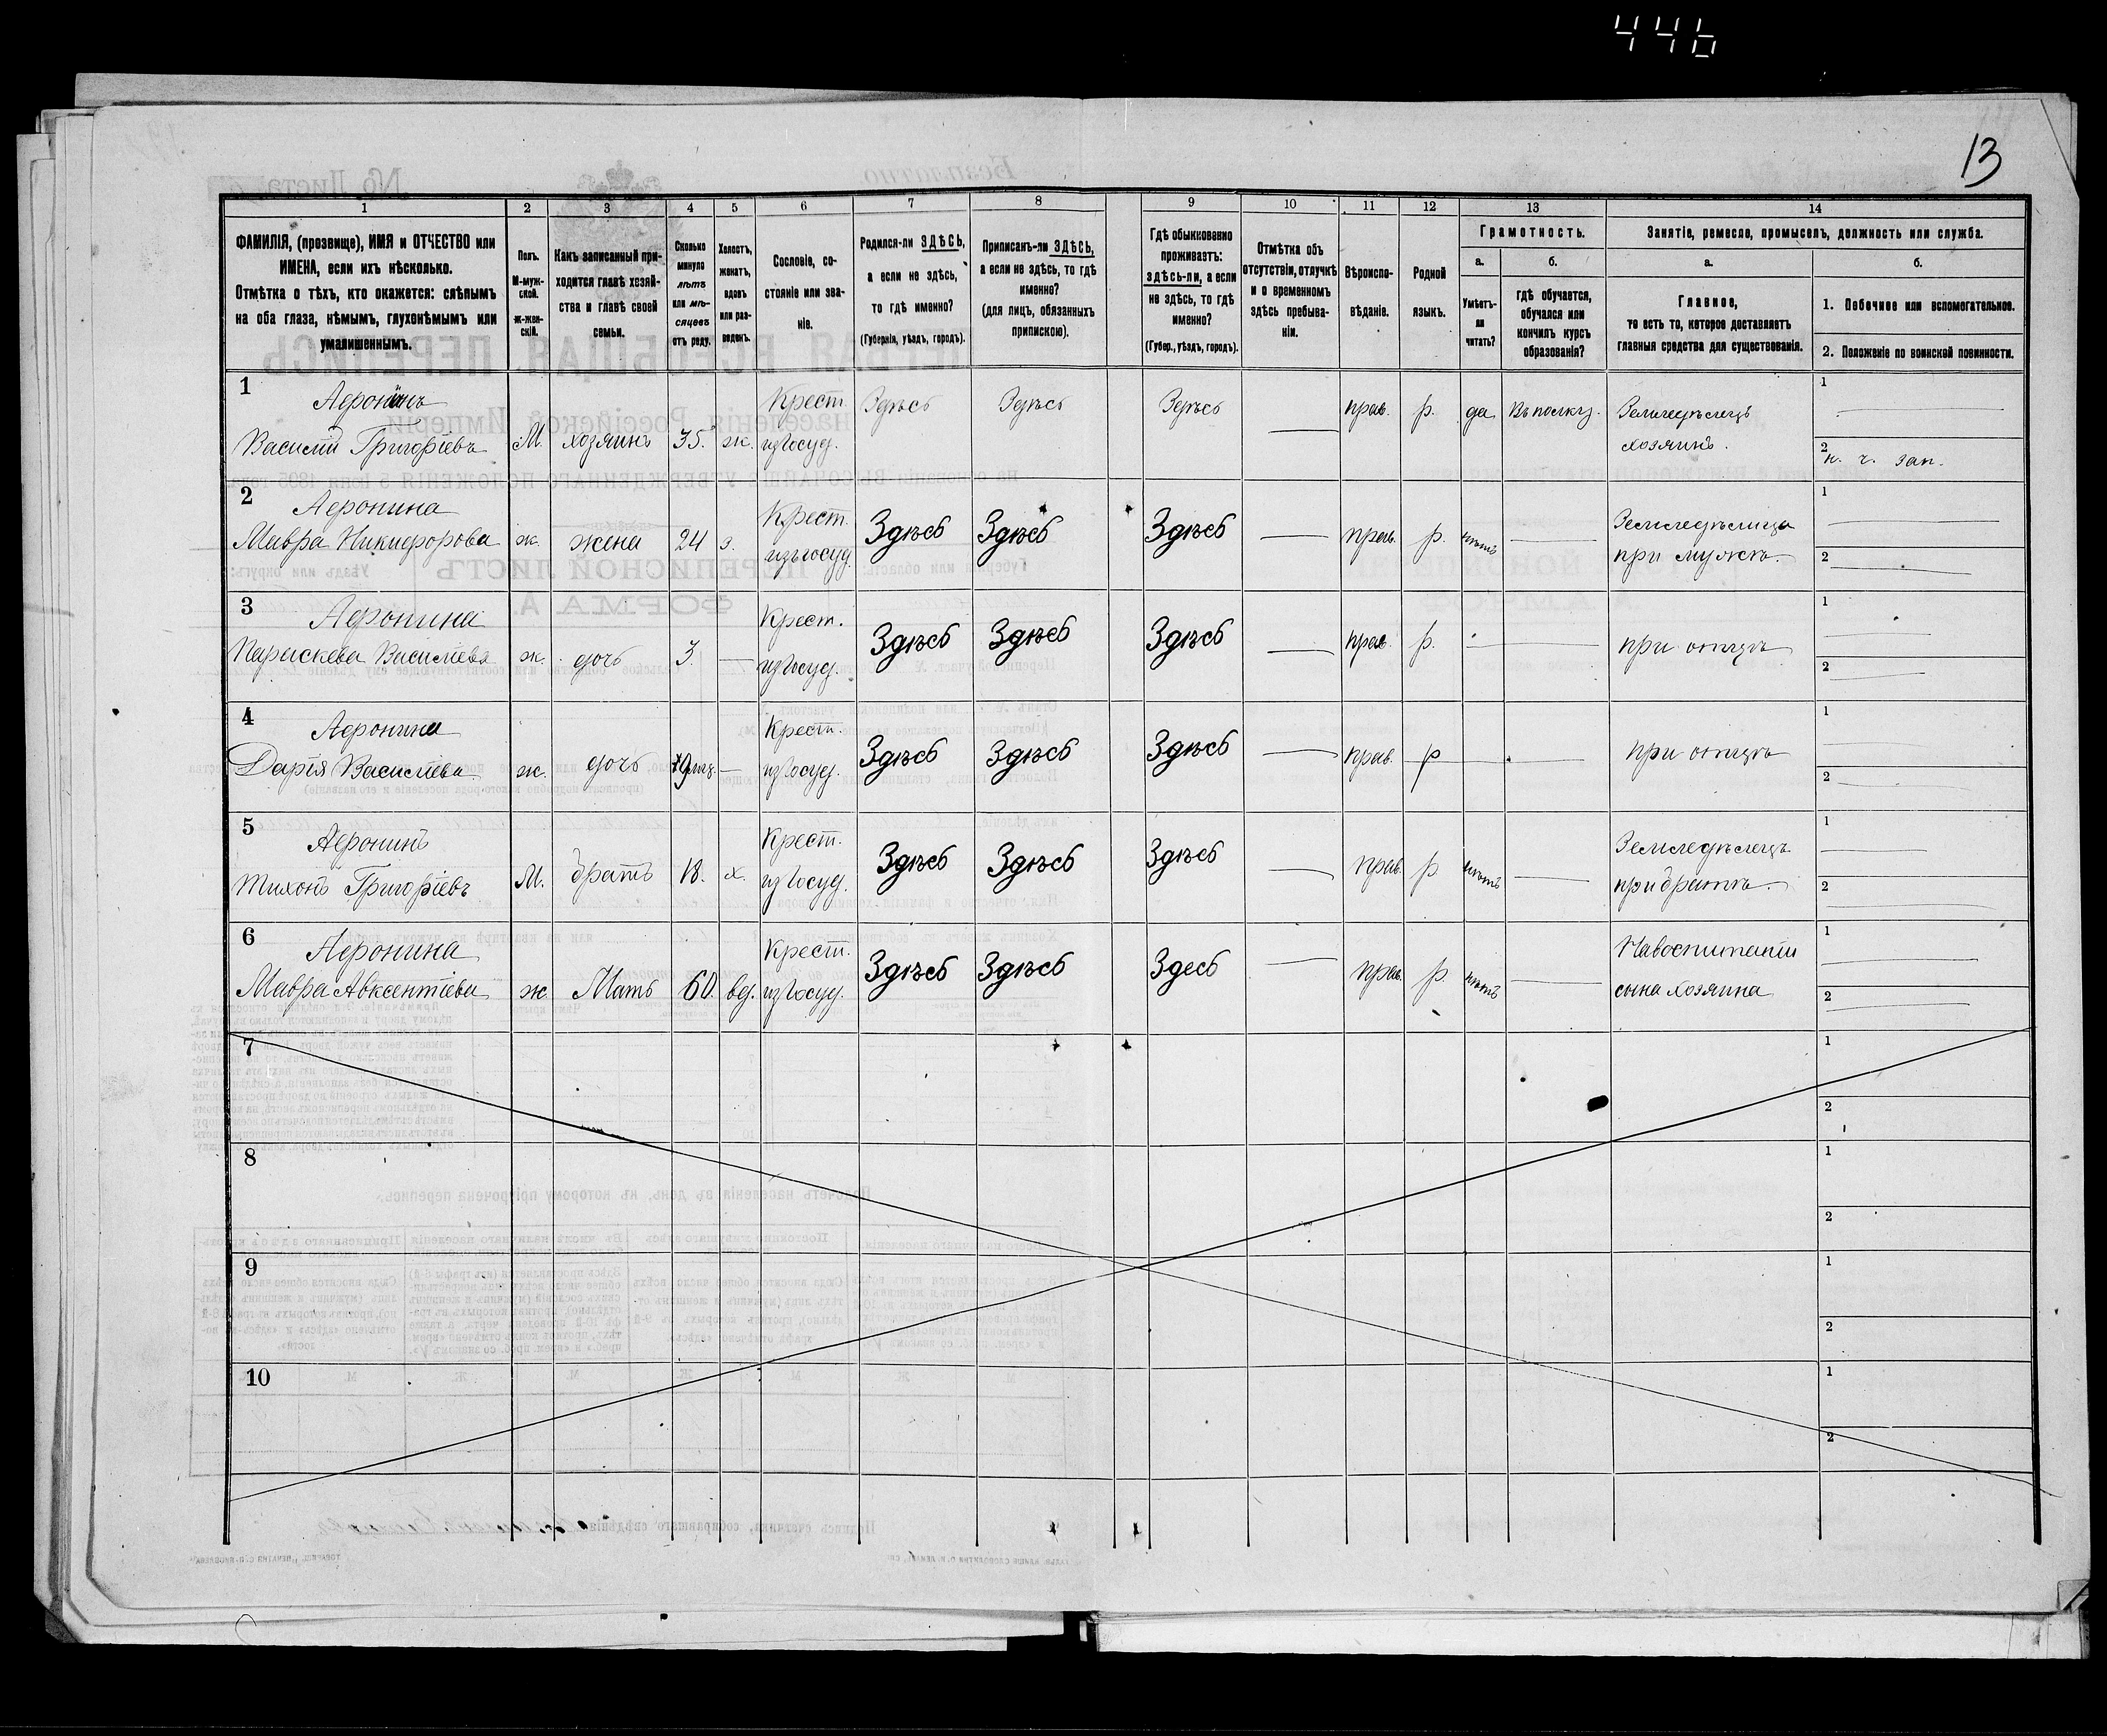 446
13
1
2
3
4
5
6
7
8
9
10
11
12
13
14
ФАМИЛІЯ, (прозвище), ИМЯ и ОТЧЕСТВО или
ИМЕНА, если ихъ нѣсколько.
Отмѣтка о тѣхъ, кто окажется: слѣпымъ
на оба глаза, нѣмымъ, глухонѣмымъ или
умалишеннымъ.
Полъ.
М-муж-
ской.
ж-жен-
скій.
Какъ записанный при-
ходится главѣ хозяй-
ства и главѣ своей
семьи.
Сколько
минуло
лѣтъ
или мѣ-
сяцевъ
отъ роду.
Холостъ,
женатъ,
вдовъ
или раз-
веденъ.
Сословіе, со-
стояніе или зва-
ніе.
Родился-ли ЗДѢСЬ,
а если не здѣсь,
то гдѣ именно?
(Губернія, уѣздъ, городъ).
Приписанъ-ли ЗДѢСЬ,
а если не здѣсь, то гдѣ
именно?
(для лицъ, обязанныхъ
припискою).
Гдѣ обыкновенно
проживаетъ:
здѣсь-ли, а если
не здѣсь, то гдѣ
именно?
(Губер., уѣздъ, городъ).
Отмѣтка объ
отсутствіи, отлучкѣ
и о временномъ
здѣсь пребыва-
ніи.
Вѣроиспо-
вѣданіе.
Родной
языкъ.
Грамотность.
а.
Умѣетъ-
ли
читать?
б.
гдѣ обучается,
обучался или
кончилъ курсъ
образованія?
Занятіе, ремесло, промыселъ, должность или служба.
а.
Главное,
то есть то, которое доставляетъ
главныя средства для существованія.
б.
1. Побочное или вспомогательное.
2. Положеніе по воинской повинности.
1
Афронинъ
Василій Григоріевъ
М.
хозяинъ
35.
ж.
Крест.
изъ госуд.
Здѣсь
Здѣсь
Здѣсь
прав.
р.
да
Въ полку.
Земледѣлецъ
хозяинъ.
1
2
н. ч. зап.
2
Афронина
Мавра Никифорова
ж.
жена
24
з.
Крест.
изъ госуд.
Здѣсь
Здѣсь
Здѣсь
прав.
р.
нѣтъ
Земледѣлица
при мужѣ.
1
2
3
Афронина
Параскева Василіева
ж.
дочь
3.
Крест.
изъ госуд.
Здѣсь
Здѣсь
Здѣсь
прав.
р.
при отцѣ
1
2
4
Афронина
Дарія Василіева
ж.
дочь
Крест.
изъ госуд.
Здѣсь
Здѣсь
Здѣсь
прав.
р
при отцѣ
1
2
5
Афронинъ
Тихонъ Григоріевъ
М.
братъ
18.
х.
Крест.
изъ госуд.
Здѣсь
Здѣсь
Здѣсь
прав.
р.
нѣтъ
Земледѣлецъ
при братѣ.
1
2
6
Афронина
Мавра Авксентіева
ж.
Мать
60.
вд.
Крест.
изъ госуд.
Здѣсь
Здѣсь
Здесь
прав.
р.
нѣтъ
На воспитаніи
сына хозяина
1
2
7
1
2
8
1
2
9
1
2
10
1
2